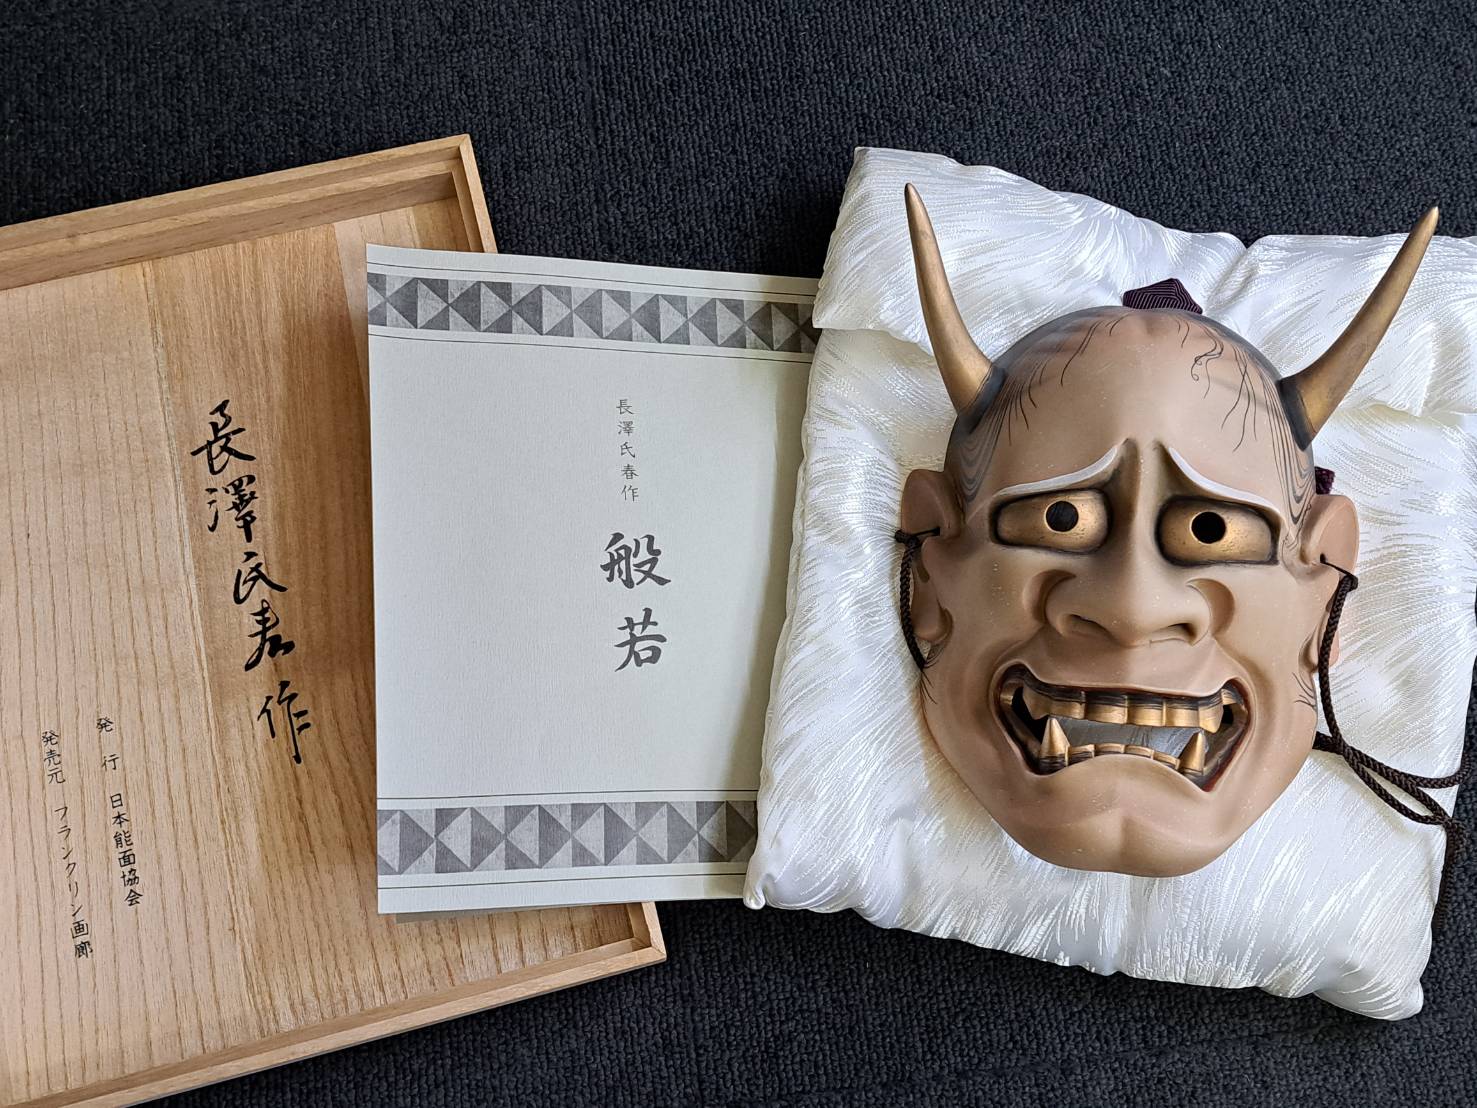 長澤氏春作
発行 日本能面協会
発売元 フランクリン画廊
長澤氏春作
般若